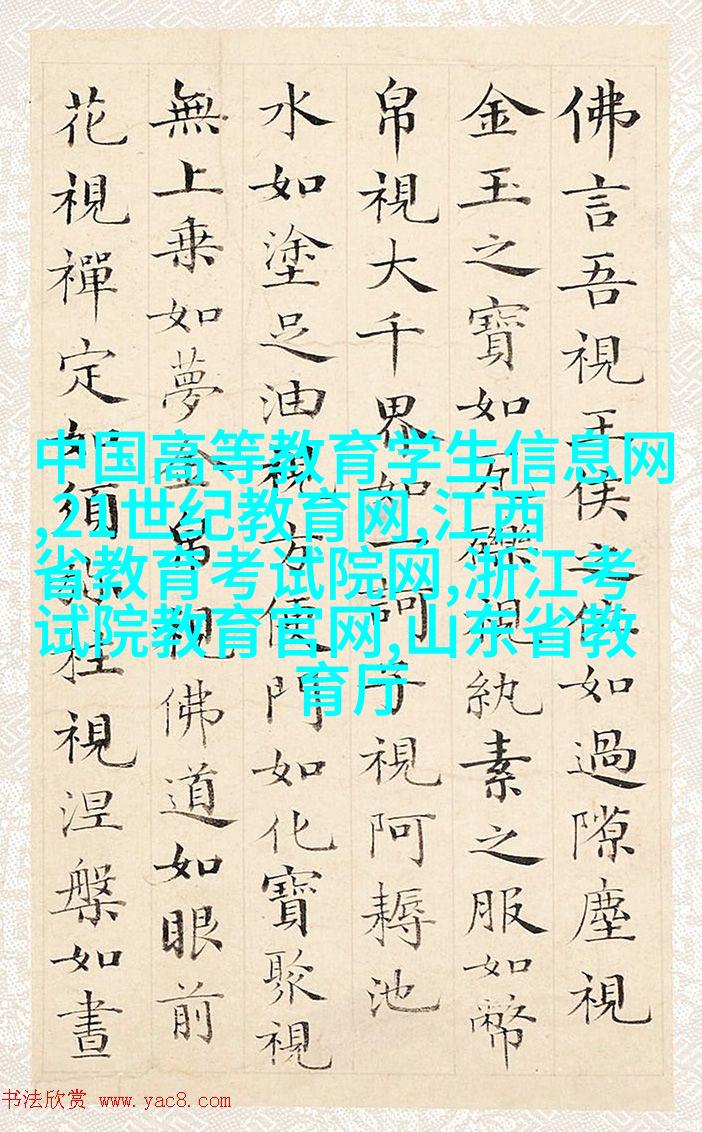 佛言吾視王侯之位如過隙塵視
金玉之寶如瓦礫視紈素之服如幣
帛視大千界如一訶子視阿耨池
水如塗足油視方便門如化寶聚視
無上乗如夢金帛視佛道如眼前
花視禪定如須弥柱視涅槃如晝
中国高等教育学生信息网
,21世纪教育网,江西
省教育考试院网,浙江考
试院教育官网,山东省教
育厅
书法欣赏 www.yac8.com